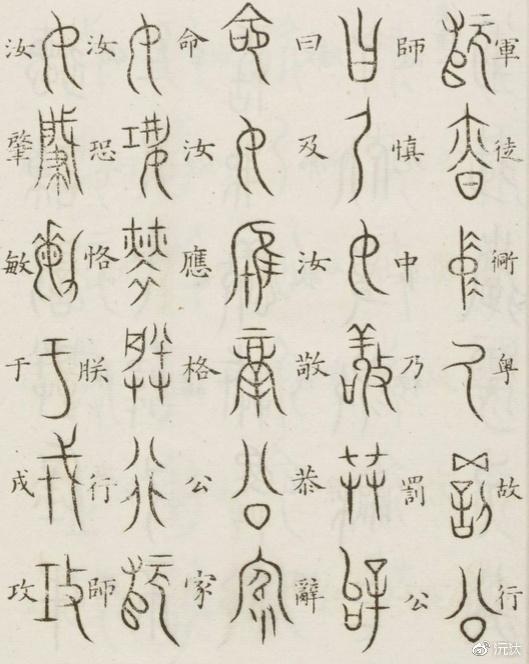 軍徒粤故行
師慎中乃罰公
曰及汝敬恭辭
命汝應格公家
汝恐恪朕行師
汝肇敏于戎攻
@沅汰